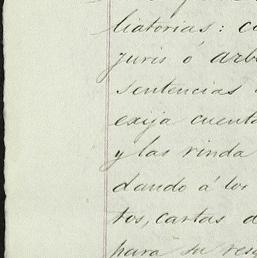 liatorias: c
juris ó arb
sentencias
exija cuenta
y las rinda
dando á los
tos, cartas d
para su resg